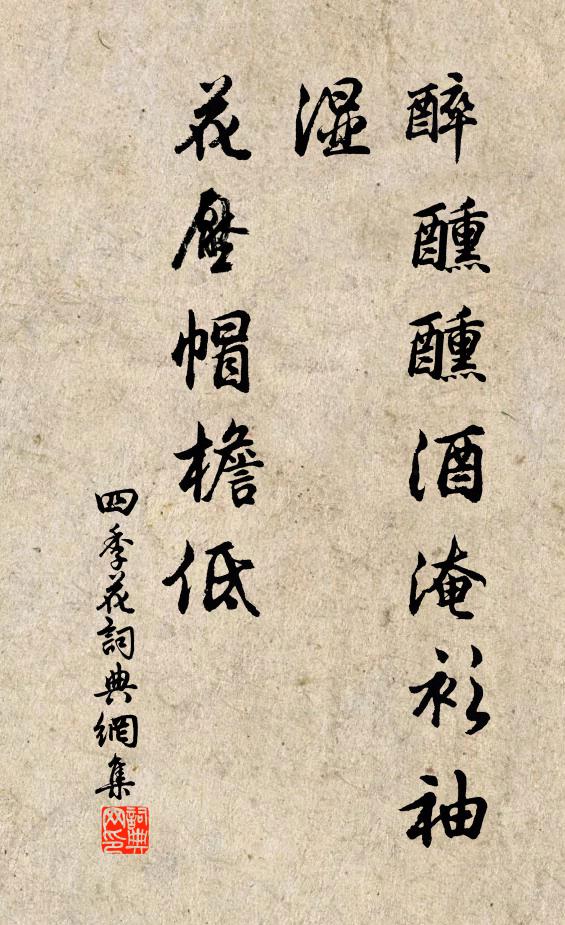 醉醺醺酒淹衫袖
湿
花壓帽檐低
四季花詞典網集
詞典
网印